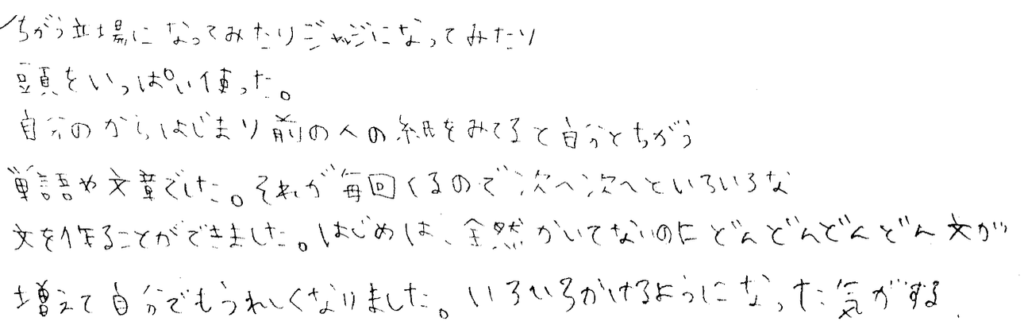 ちがう立場になってみたりジャッジになってみたり
頭をいっぱい使った。
自分のからはじまり前の人の紙をみてると自分とちがう
単語や文章でした。それが毎回くるので次へ次へといろいろな
文を作ることができました。はじめは、全然かいてないのにどんどんどんどん文が
増えて自分でもうれしくなりました。いろいろかけるようになった気がする.